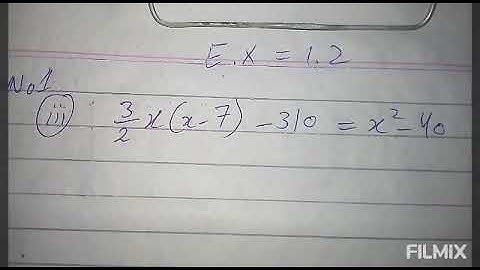 E.X = 1.2
No1
iii 3/2 x(x-7) - 310 = x² - 40
FILMIX